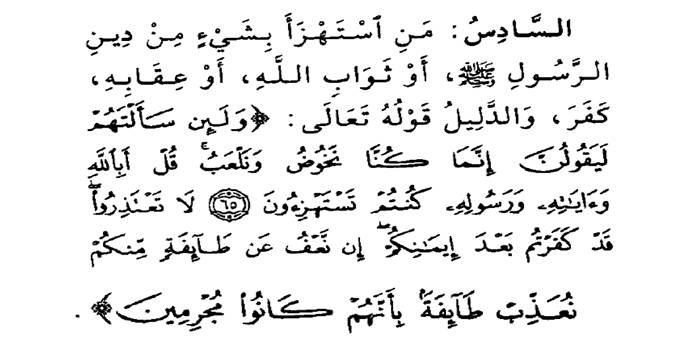 السَّادِسُ: مَنِ اسْتَهْزَأَ بِشَيْءٍ مِنْ دِينِ
الرَّسُولِ ﷺ، أَوْ ثَوَابِ اللَّهِ، أَوْ عِقَابِهِ،
كَفَرَ، وَالدَّلِيلُ قَوْلُهُ تَعَالَى: ﴿وَلَئِن سَأَلْتَهُمْ
لَيَقُولُنَّ إِنَّمَا كُنَّا نَخُوضُ وَنَلْعَبُ ۚ قُلْ أَبِاللَّهِ
وَءَايَٰتِهِۦ وَرَسُولِهِۦ كُنتُمْ تَسْتَهْزِءُونَ ۝٦٥ لَا تَعْتَذِرُوا۟ ۖ
قَدْ كَفَرْتُم بَعْدَ إِيمَٰنِكُمْ ۖ إِن نَّعْفُ عَن طَآئِفَةٍ مِّنكُمْ
نُعَذِّبْ طَآئِفَةًۢ بِأَنَّهُمْ كَانُوا۟ مُجْرِمِينَ﴾.